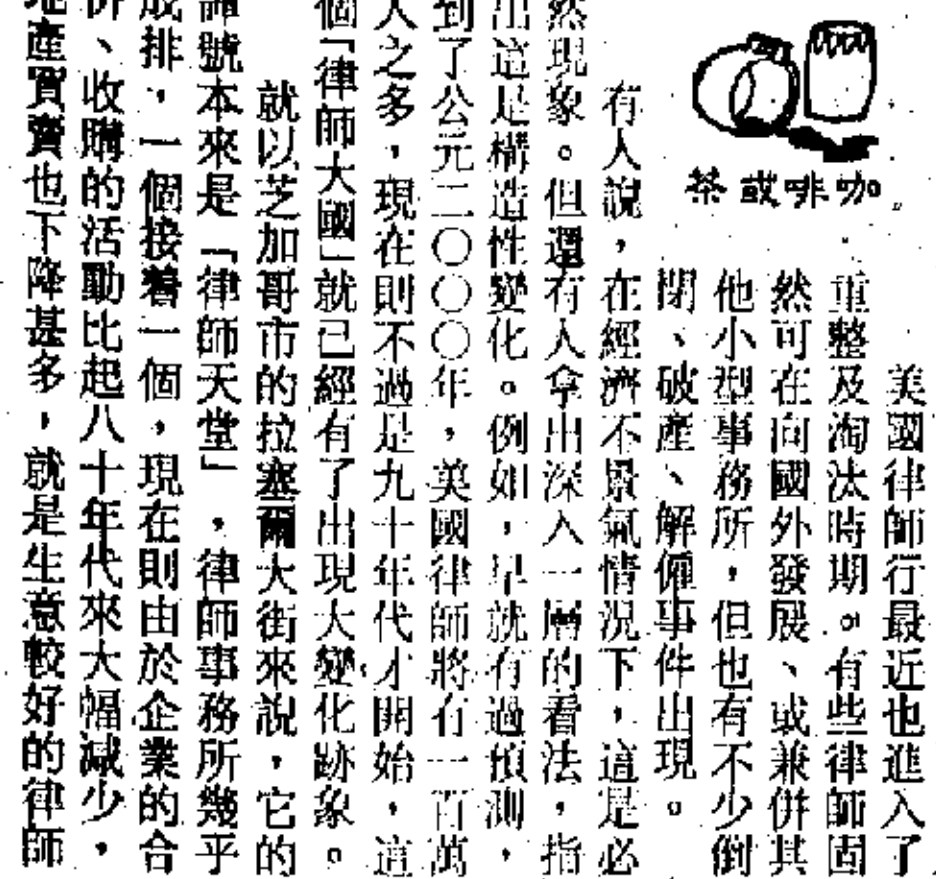 咖啡或茶
美國律師行最近也進入了
重整及淘汰時期。有些律師固
然可在向國外發展、或兼併其
他小型事務所,但也有不少倒
閉、破產、解僱事件出現。
有人說,在經濟不景氣情況下,這是必
然現象。但還有人拿出深入一層的看法,指
出這是構造性變化。例如,早就有過預測,
到了公元二〇〇〇年,美國律師將有一百萬
人之多,現在則不過是九十年代才開始,這
個「律師大國」就已經有了出現大變化跡象。
就以芝加哥市的拉塞爾大街來說,它的
諢號本來是「律師天堂」,律師事務所幾乎
成排,一個接着一個,現在則由於企業的合
併、收購的活動比起八十年代來大幅減少,
地產買賣也下降甚多,就是生意較好的律師